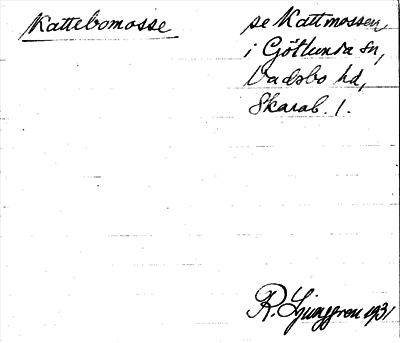 Kattebomosse
se Kattmossen,
i Götlunda sn,
Vadsbo hd,
Skarab. l.
R. Ljunggren 1931